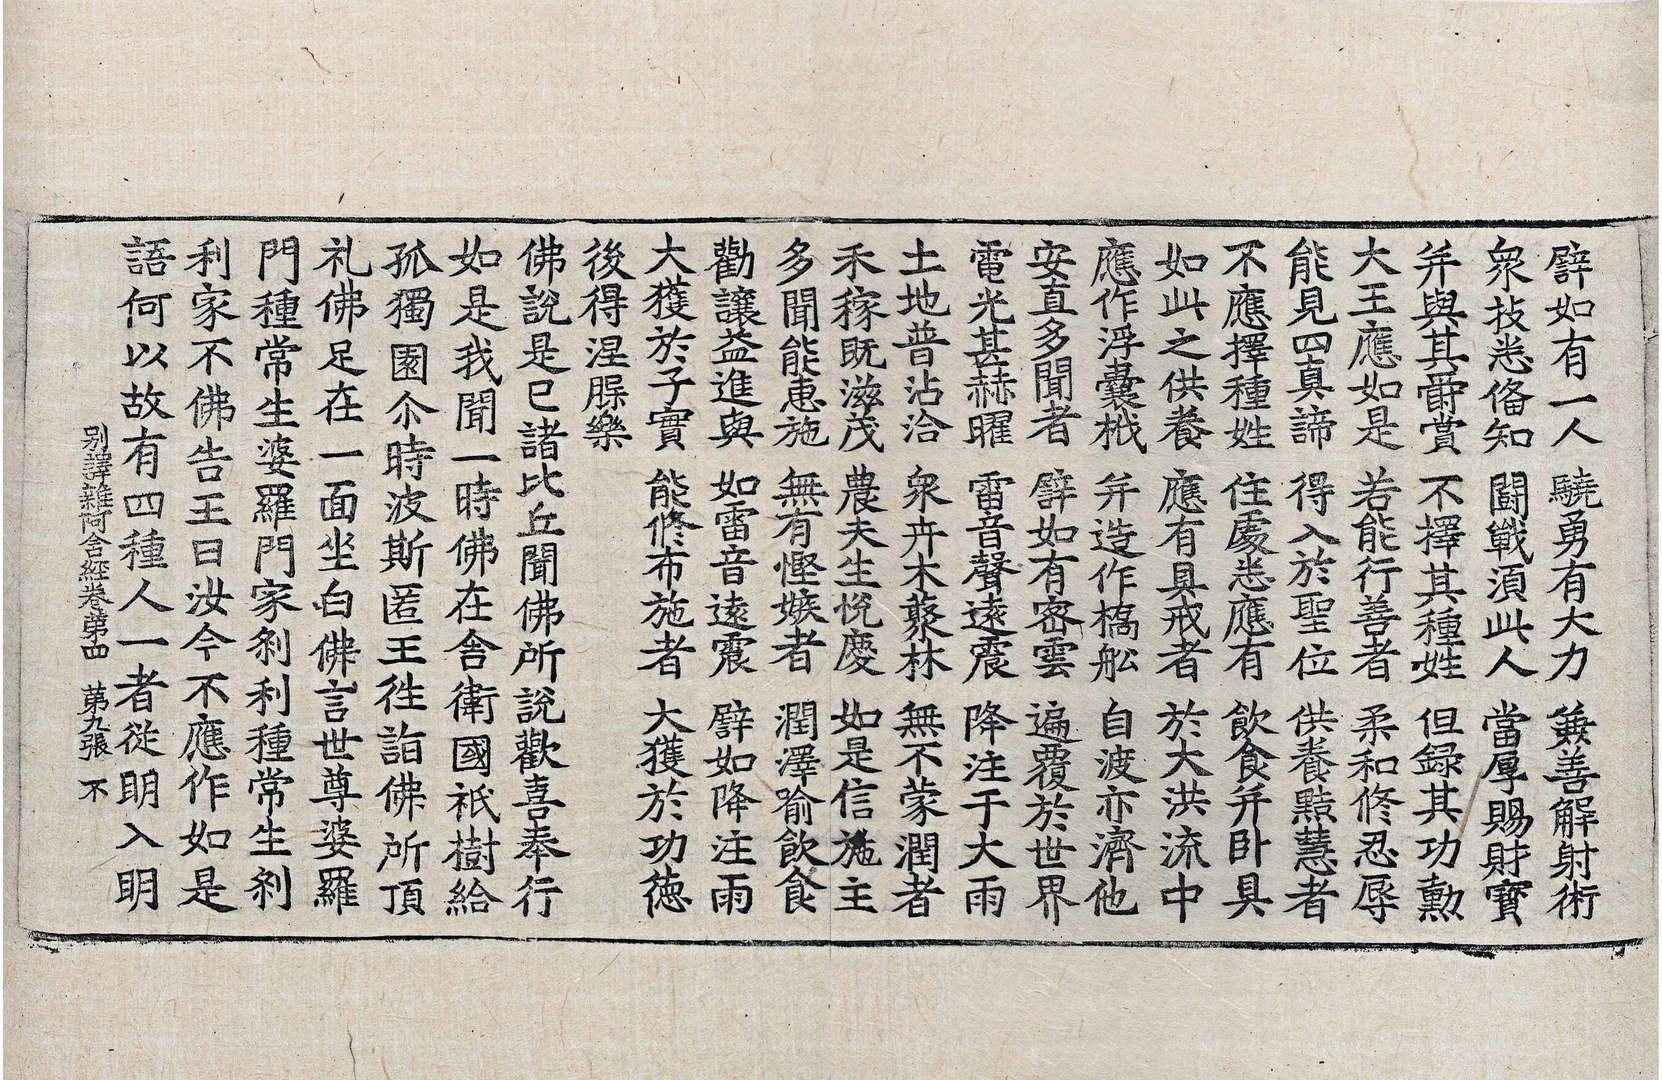 譬如有一人　驍勇有大力　兼善解射術
衆技悉俻知　鬪戰湏此人　當厚賜財寶
并與其爵賞　不擇其種姓　但録其功勳
大王應如是　若能行善者　柔和修忍辱
能見四真諦　得入於聖位　供養黠慧者
不應擇種姓　住處悉應有　飲食并卧具
如此之供養　應有具戒者　於大洪流中
應作浮囊栰　并造作橋舩　自渡亦濟他
安直多聞者　譬如有密雲　遍覆於世界
電光甚赫曜　雷音聲遠震　降注于大雨
土地普沾洽　衆卉木藂林　無不蒙潤者
禾稼旣滋茂　農夫生悅慶　如是信施主
多聞能惠施　無有慳嫉者　潤澤喻飲食
勸讓益進與　如雷音遠震　譬如降注雨
大獲於子實　能修布施者　大獲於功徳
後得涅槃樂
佛說是已諸比丘聞佛所說歡喜奉行
如是我聞一時佛在舍衛國祇樹給
孤獨園尒時波斯匿王徃詣佛所頂
礼佛足在一面坐白佛言世尊婆羅
門種常生婆羅門家刹利種常生刹
利家不佛告王曰汝今不應作如是
語何以故有四種人一者從明入明
别譯雜阿含經卷第四　第九張　不